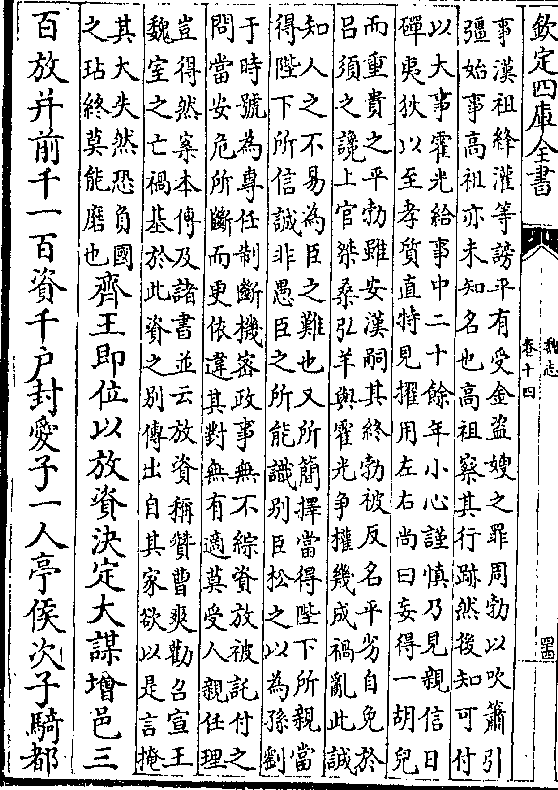 欽定四庫全書
魏志
卷十四
事漢祖絳灌等謗平有受金盜嫂之罪周勃以吹簫引
彊始事高祖亦未知名也高祖察其行跡然後知可付
以大事霍光給事中二十餘年小心謹慎乃見親信日
磾夷狄以至孝質直特見擢用左右尚曰妄得一胡兒
而重貴之平勃雖安漢嗣其終勃被反名平劣自免於
呂須之讒上官桀桑弘羊與霍光爭權幾成禍亂此誠
知人之不易為臣之難也又所簡擇當得陛下所親當
得陛下所信誠非愚臣之所能識別臣松之以為孫劉
于時號為專任制斷機密政事無不綜資放被託付之
問當安危所斷而更依違其對無有適莫受人親任理
豈得然案本傳及諸書並云放資稱贊曹爽勸召宣王
魏室之亡禍基於此資之別傳出自其家欲以是言掩
其大失然恐負國
之玷終莫能磨也
齊王即位以放資決定大謀增邑三
百放并前千一百資千户封愛子一人亭侯次子騎都